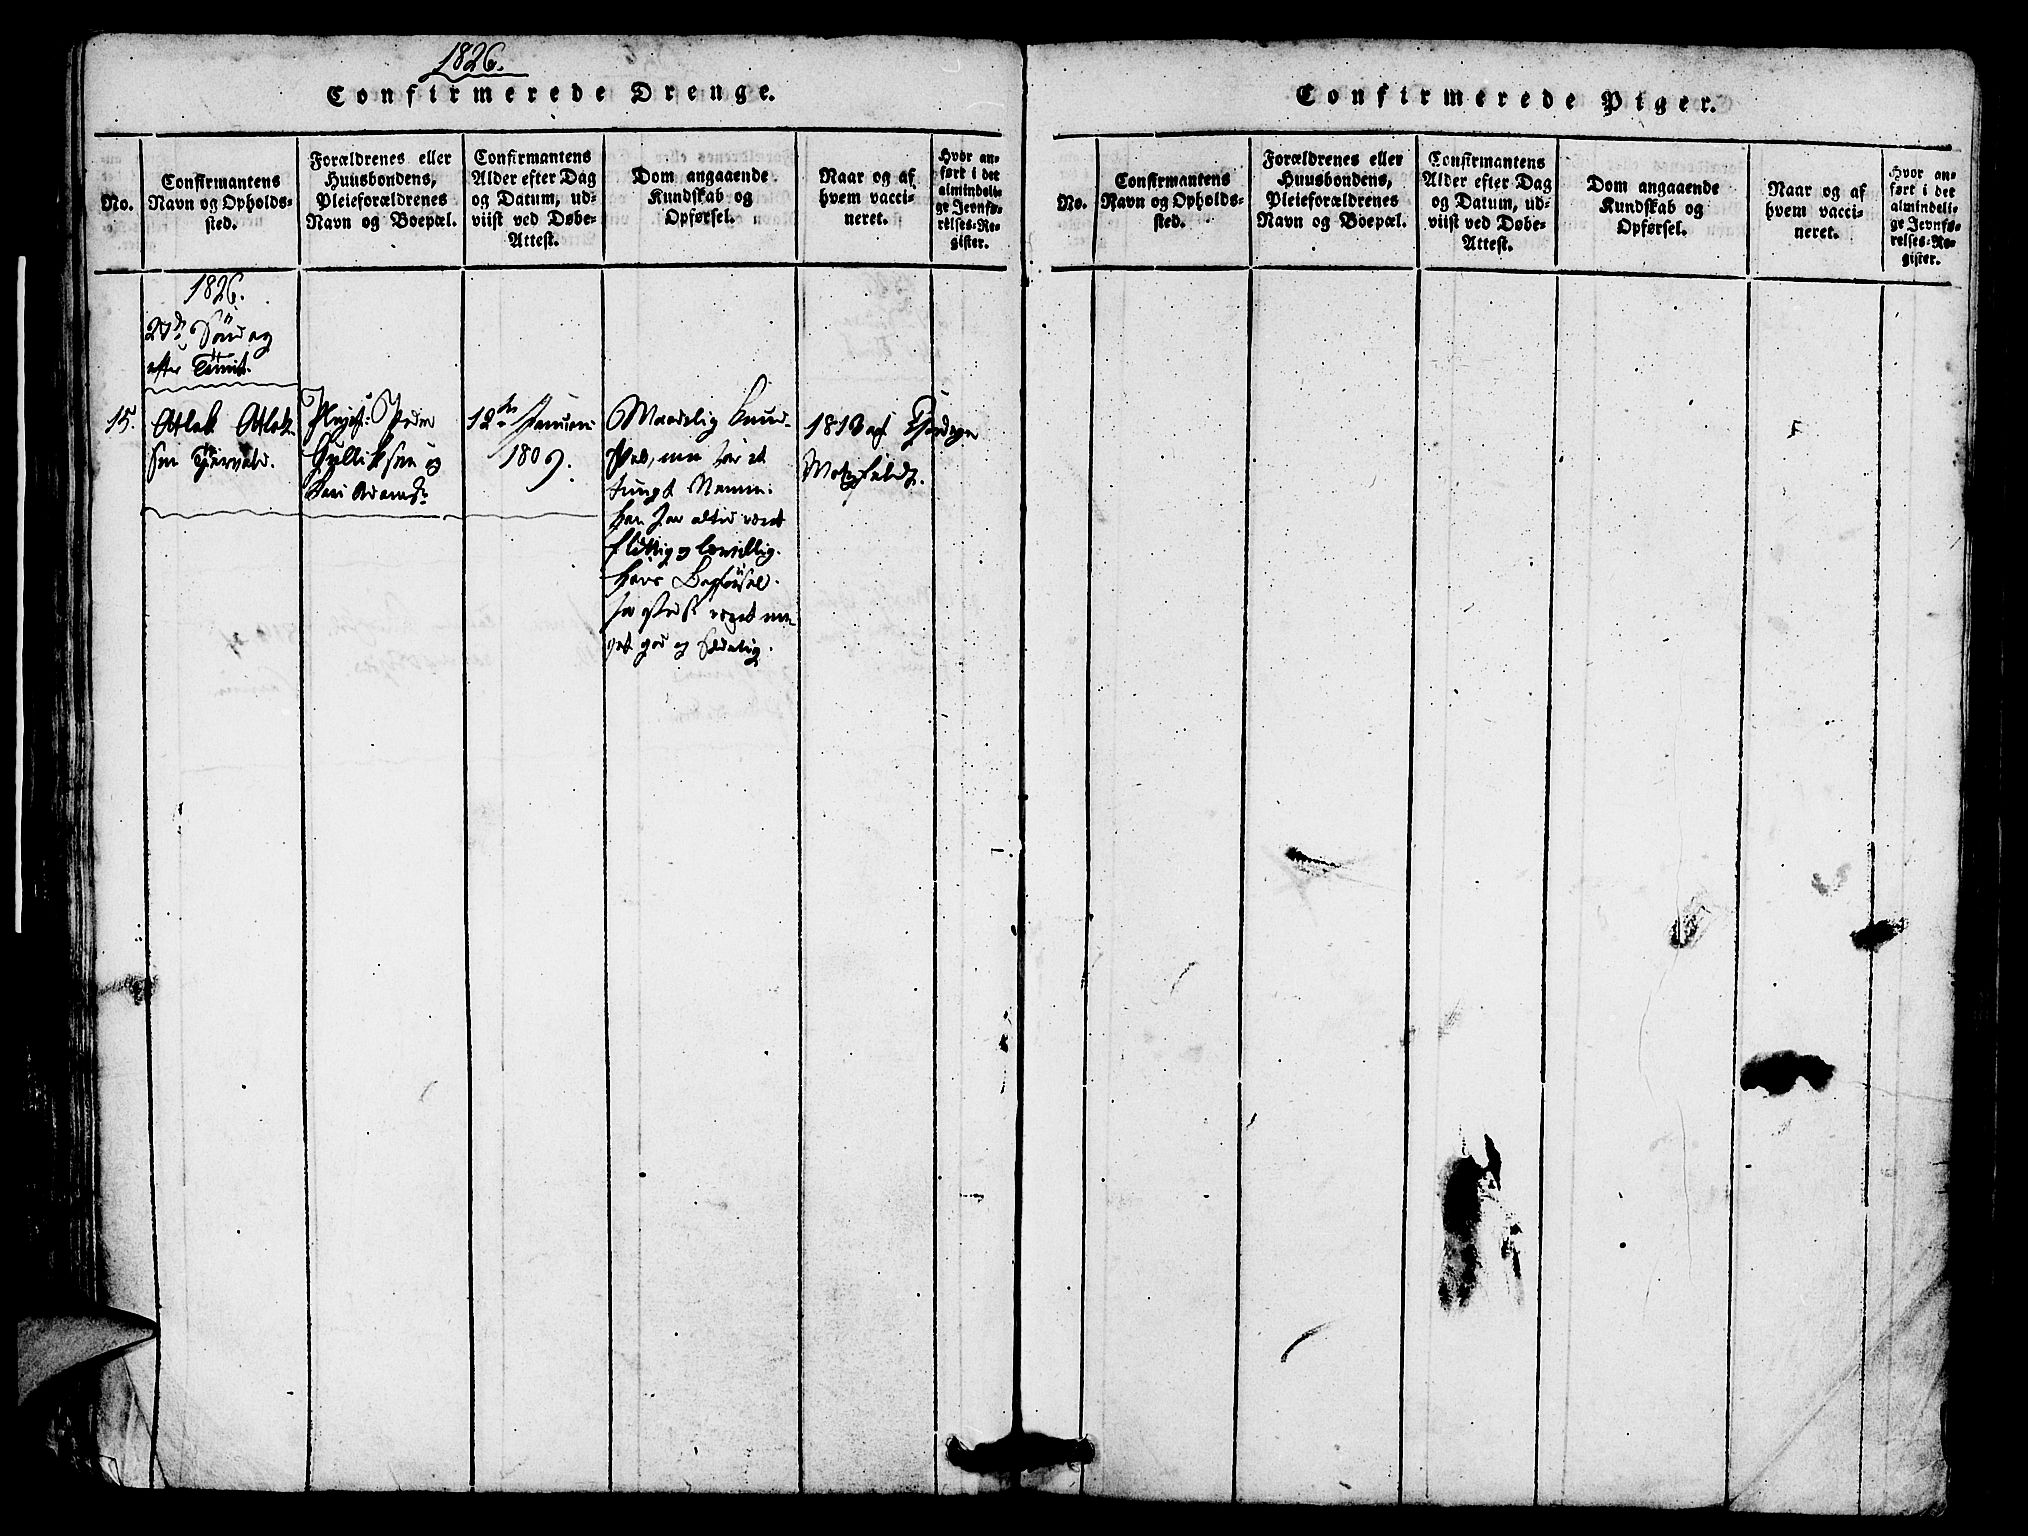 1826.
Confirmerede Drenge.
No.
Confirmantens
Navn og Opholds-
sted.
Forældrenes eller
Huusbondens,
Pleieforældrenes
Navn og Boepæl.
Confirmantens
Alder efter Dag
og Datum, ud-
viist ved Døbe-
Attest.
Dom angaaende
Kundskab og
Opførsel.
Naar og af
hvem vacci-
neret.
Hvor an-
ført i det
almindeli-
ge Jevnfø-
relses-Re-
gister.
1826.
Söndag
efter
15.
Atlak Atlak
sen
Plejef: Peder
og
12te Januari
1809.
Maadelig Kund-
skab, men har et
tungt Nemme.
han har altid været
flittig og lærvillig.
hans Opförsel
har og været me-
get god og sædelig.
af
Confirmerede Piger.
No.
Confirmantens
Navn og Opholds-
sted.
Forældrenes eller
Huusbondens,
Pleieforældrenes
Navn og Boepæl.
Confirmantens
Alder efter Dag
og Datum, ud-
viist ved Døbe-
Attest.
Dom angaaende
Kundskab og
Opførsel.
Naar og af
hvem vacci-
neret.
Hvor an-
ført i det
almindeli-
ge Jevnfø-
relses-Re-
gister.